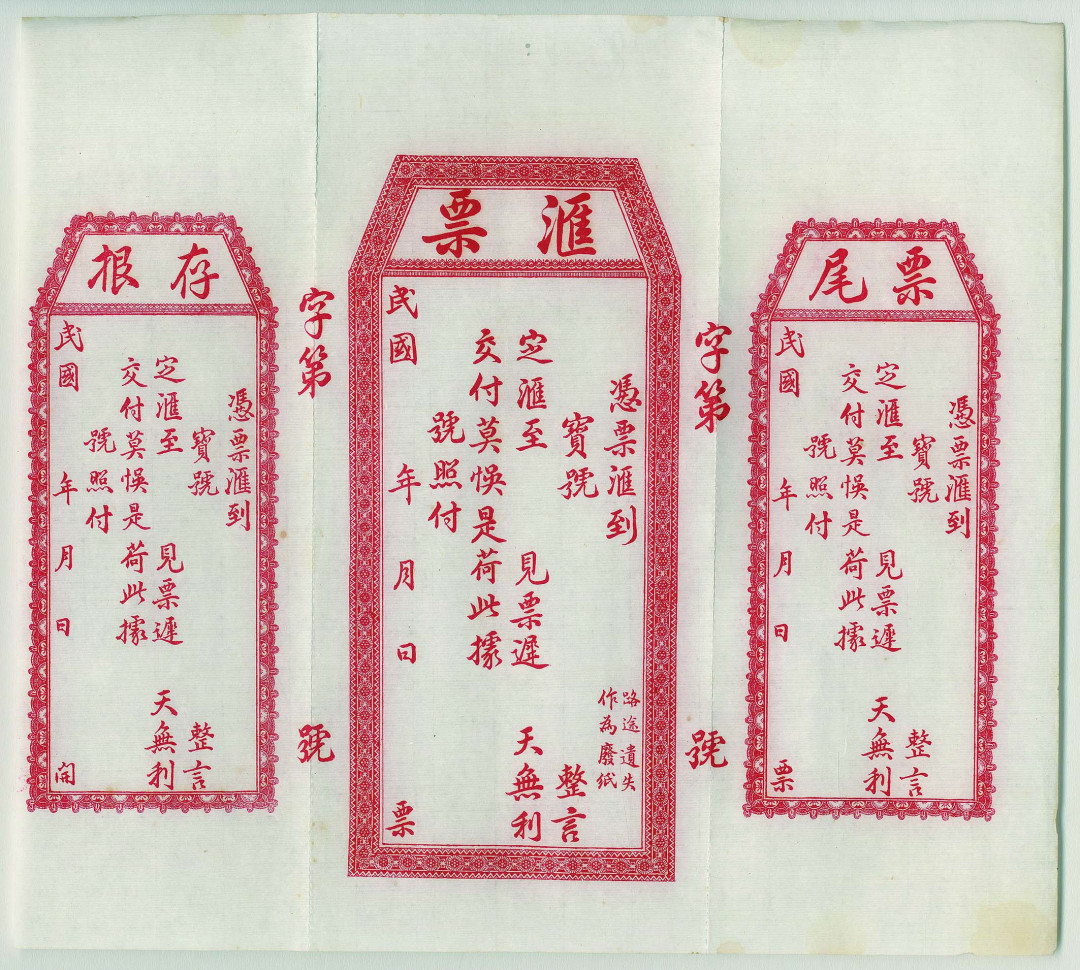 票尾
憑票滙到
寶號 整言
定滙至 見票遲 天無利
交付莫悞是荷此據
號照付
民國 年 月 日 票
字第 號
滙票
憑票滙到 路途遺失
作為廢紙
寶號 整言
定滙至 見票遲 天無利
交付莫悞是荷此據
號照付
民國 年 月 日 票
字第 號
存根
憑票滙到
寶號 整言
定滙至 見票遲 天無利
交付莫悞是荷此據
號照付
民國 年 月 日 開